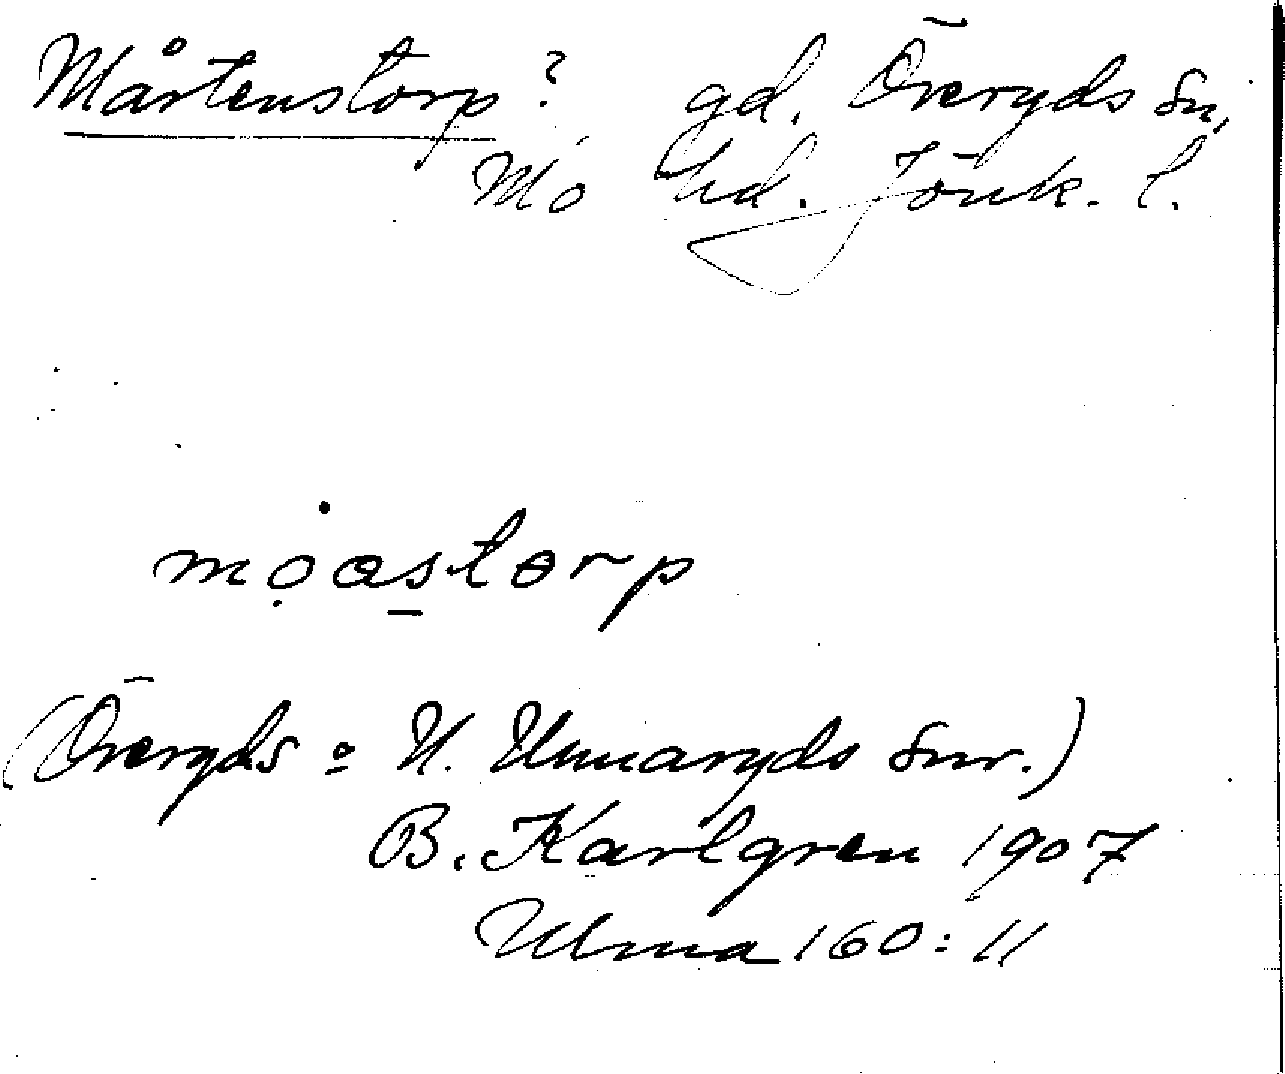 Mårtenstorp? gd. Öreryds sn,
Mo hd. Jönk. l.
mọ̇astorp
(Öreryds o N. Unnaryds snr.)
B. Karlgren 1907
Ulma 160:11